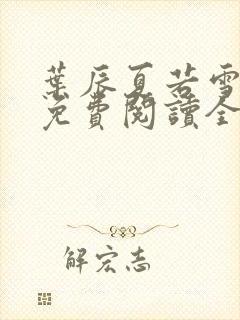 葉辰夏若雪
免費閱讀全
解宏志